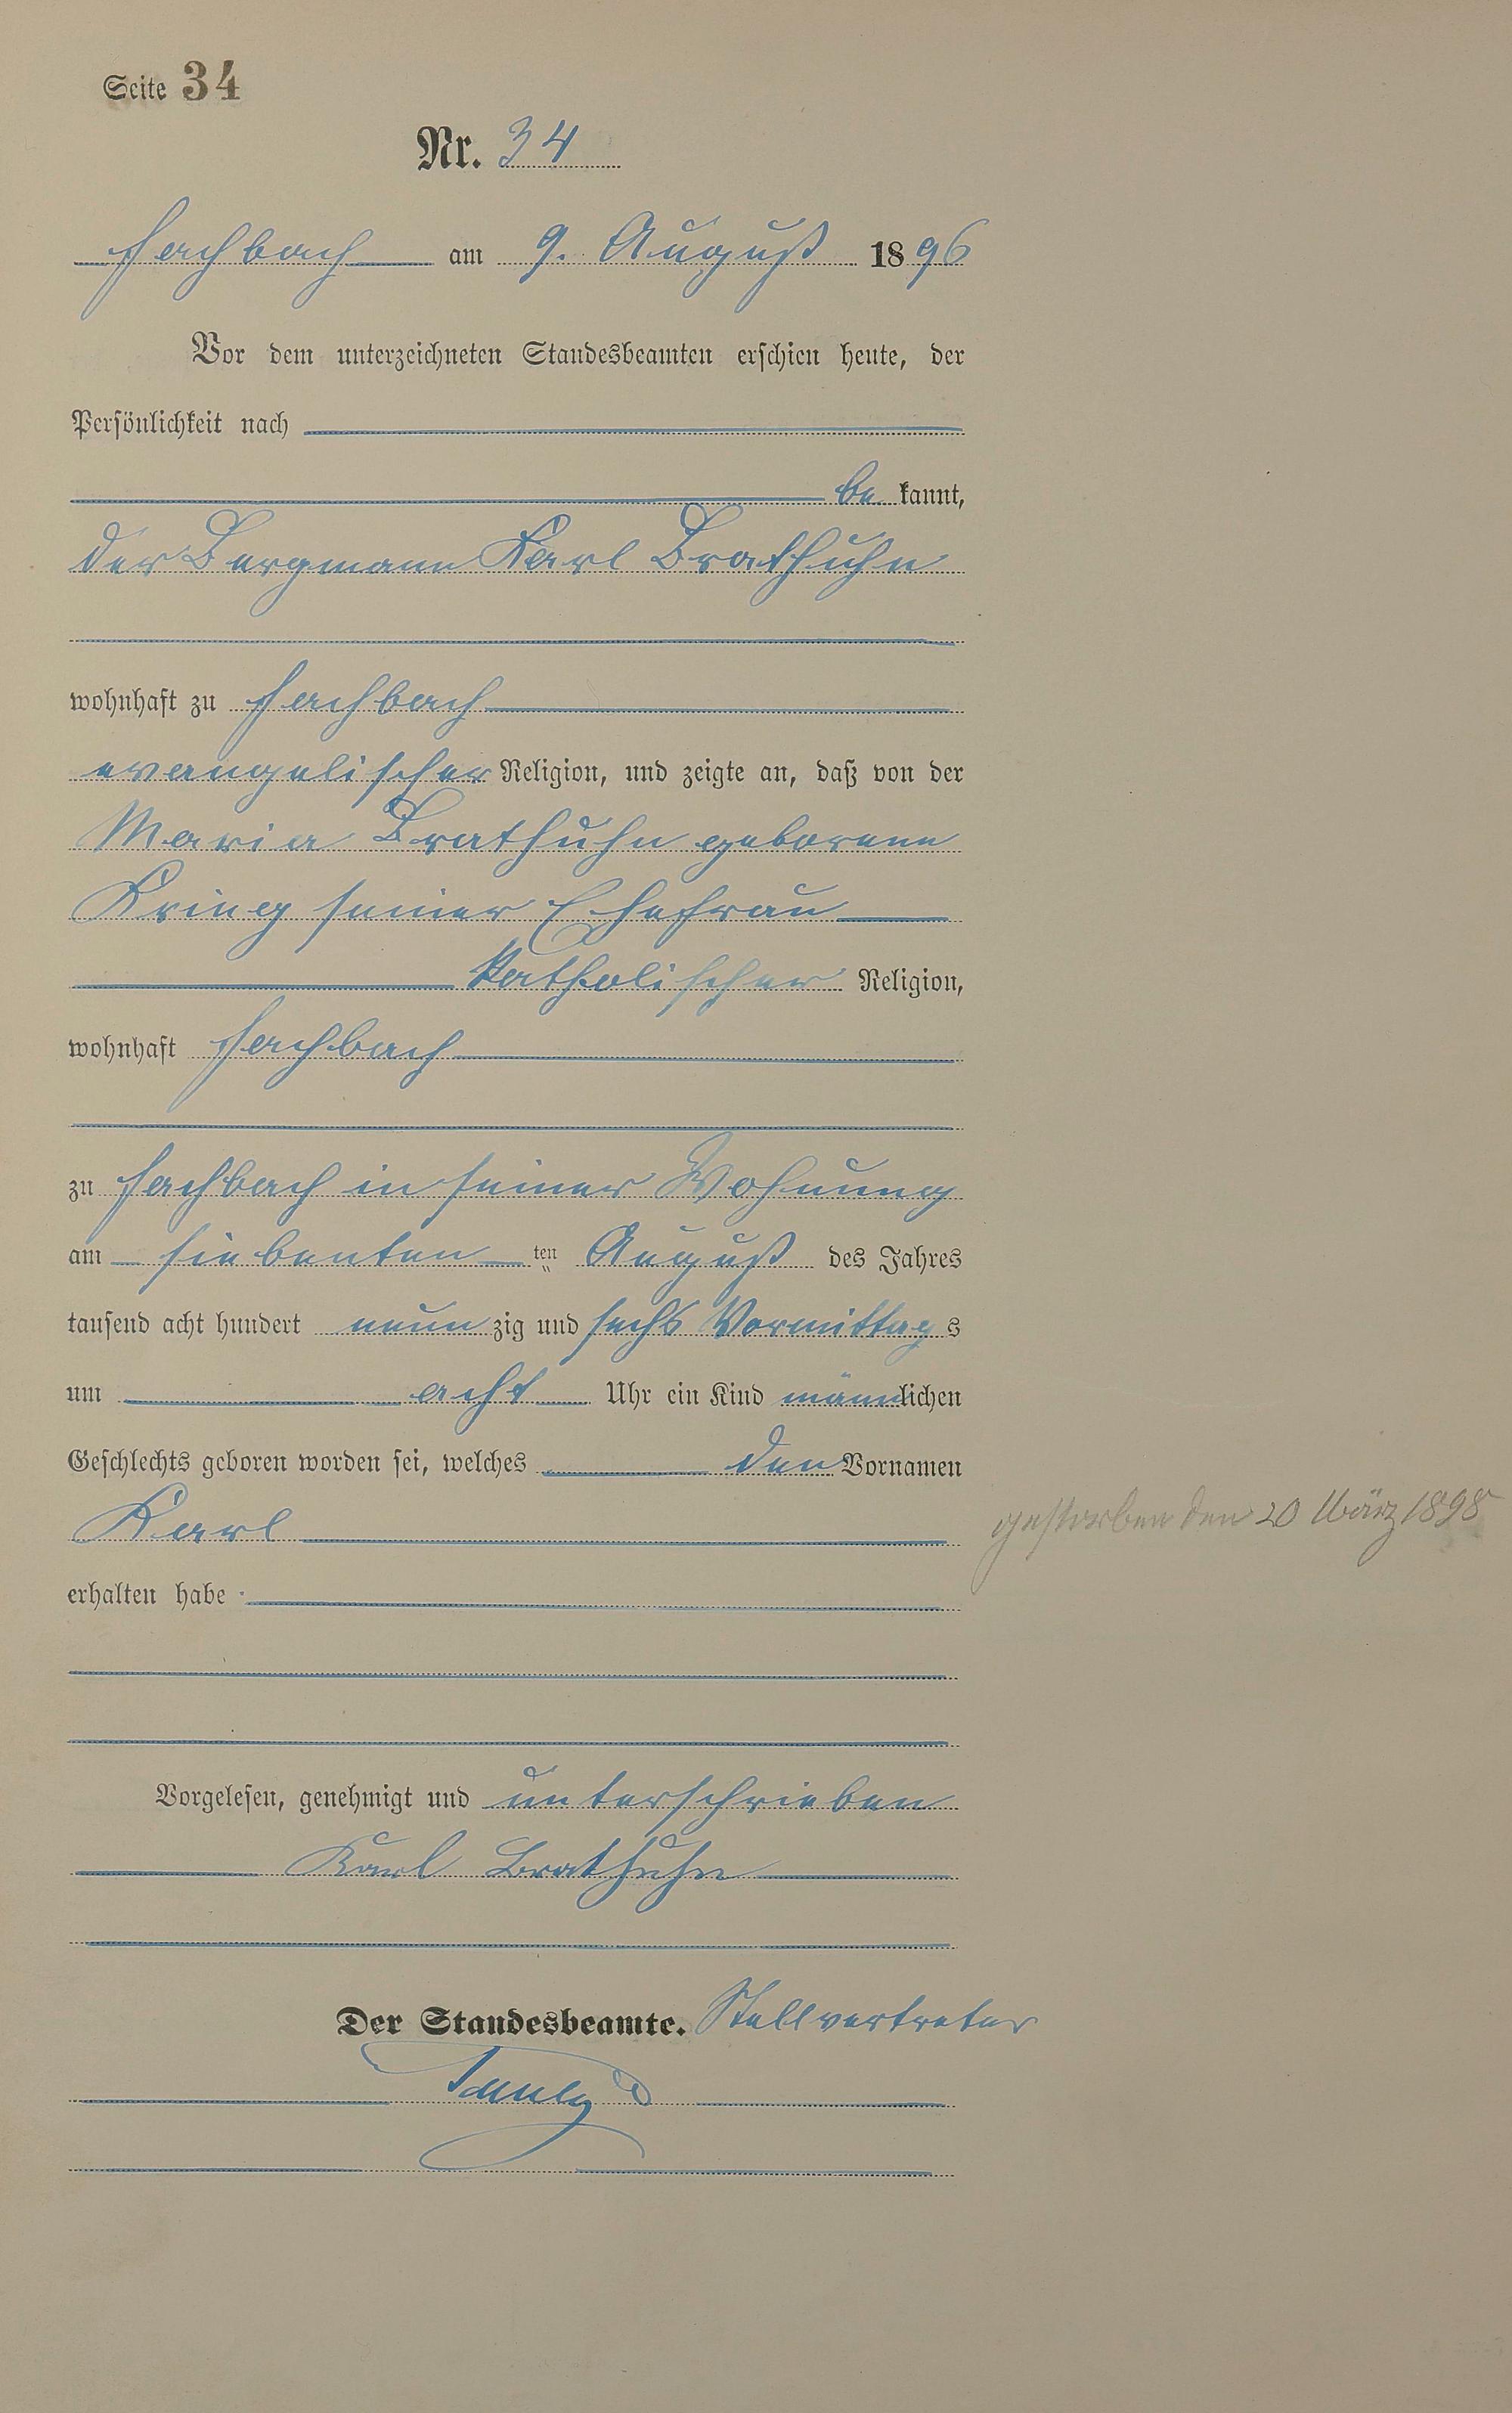 Seite 34
Nr. 34
Fachbach am 9. August 1896
Vor dem unterzeichneten Standesbeamten erschien heute, der
Persönlichkeit nach
be kannt,
der Bergmann Karl Brathuhn
wohnhaft zu Fachbach
evangelischer Religion, und zeigte an, daß von der
Maria Brathuhn geborene
Krieg seiner Ehefrau
katholischer Religion,
wohnhaft Fachbach
zu Fachbach in seiner Wohnung
am siebenten ten August des Jahres
tausend acht hundert neun zig und sechs Vormittag s
um acht Uhr ein Kind männlichen
Geschlechts geboren worden sei, welches den Vornamen
Karl
gestorben den 20 März 1898
erhalten habe
Vorgelesen, genehmigt und unterschrieben
Karl Brathuhn
Der Standesbeamte. Stellvertreter